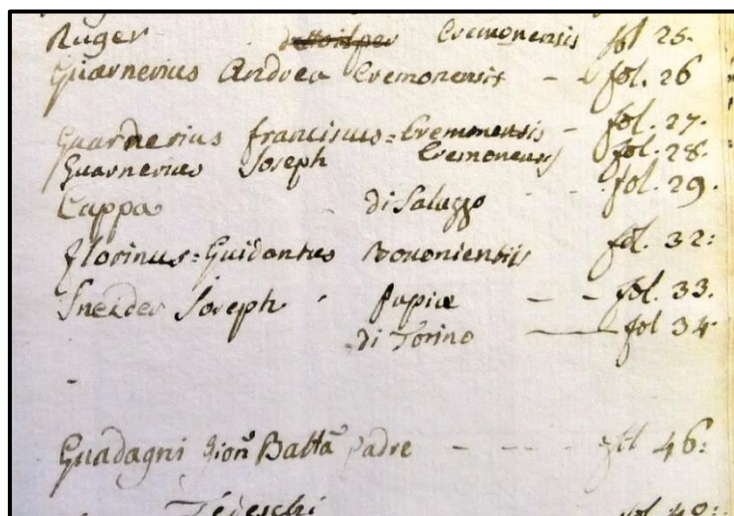 Ruger Cremonensis fol 25.
Guarnerius Andrea Cremonensis - - fol. 26
Guarnerius franciscus = Cremonensis - fol. 27.
Guarnerius Joseph Cremonensis fol. 28.
Cappa di Saluzzo - - fol. 29.
florinus = Guidantus Bononiensis fol. 32:
Sneider Joseph Papiæ - - fol. 33.
di Torino — fol 34
Guadagni Gion Batta Padre - - - - fol 46:
Tedeschi fol. 49: